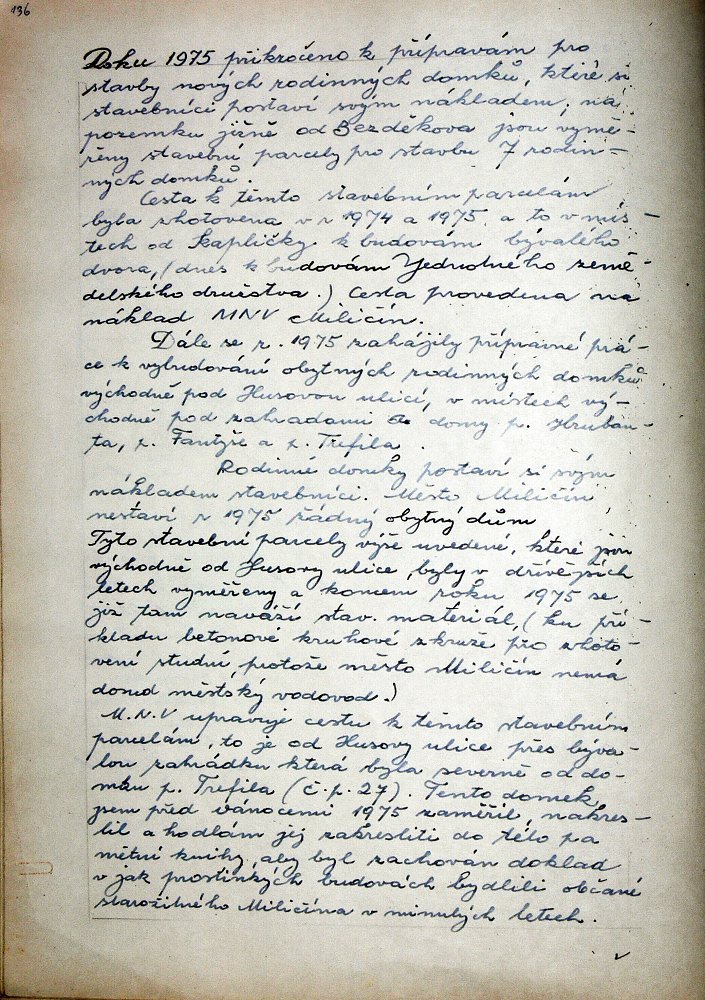 136
Roku 1975 přikročeno k přípravám pro
stavby nových rodinných domků, které si
stavebníci postaví svým nákladem, na
pozemku jižně od Bezděkova jsou vymě-
řeny stavební parcely pro stavbu 7 rodin-
ných domků.
Cesta k těmto stavebním parcelám
byla zhotovena v r 1974 a 1975. a to v mís-
tech od Kapličky k budovám bývalého
dvora, (dnes k budovám Jednotného země-
dělského družstva.) Cesta provedena na
náklad MNV Miličín.
Dále se r. 1975 zahájily přípravné prá-
ce k vybudování obytných rodinných domků
východně pod Husovou ulicí, v místech vý-
chodně pod zahradami a domy p. Hruban-
ta, p. Fantyše a p. Trefila.
Rodinné domky postaví si svým
nákladem stavebníci. Město Miličín
nestaví r 1975 řádný obytný dům
Tyto stavební parcely výše uvedené, které jsou
východně od Husovy ulice, byly v dřívějších
letech vyměřeny a koncem roku 1975 se
již tam naváží stav. materiál, (ku pří-
kladu betonové kruhové zkruže pro zhoto-
vení studní, protože město Miličín nemá
dosud městský vodovod.)
M.N.V upravuje cestu k těmto stavebním
parcelám, to je od Husovy ulice přes býva-
lou zahrádku která byla severně od do-
mku p. Trefila (č.p. 27). Tento domek
jsem před vánocemi 1975 zaměřil, nakres-
lil a hodlám jej zakresliti do této pa
mětní knihy, aby byl zachován doklad
v jak prostinkých budovách bydlili občané
starožitného Miličína v minulých letech.